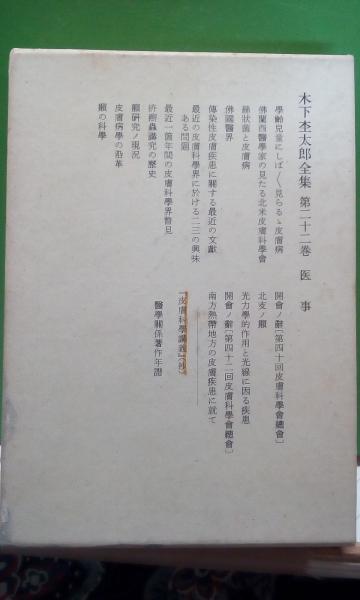 木下杢太郎全集 第二十二巻 医事
學齡兒童にしば〱見らるゝ皮膚病
佛蘭西醫學家の見たる北米皮膚科學會
絲狀菌と皮膚病
佛國醫界
傳染性皮膚疾患に關する最近の文獻
最近の皮膚科學界に於ける二三の興味
ある問題
最近一箇年間の皮膚科學界瞥見
疥癬蟲講究の歷史
癩硏究ノ現況
皮膚病學の沿革
癩の科學
開會ノ辭〔第四十回皮膚科學會總會〕
北支ノ癩
光力學的作用と光線に因る疾患
開會ノ辭〔第四十二回皮膚科學會總會〕
南方熱帶地方の皮膚疾患に就て
『皮膚科學講義』(抄)
醫學關係著作年譜